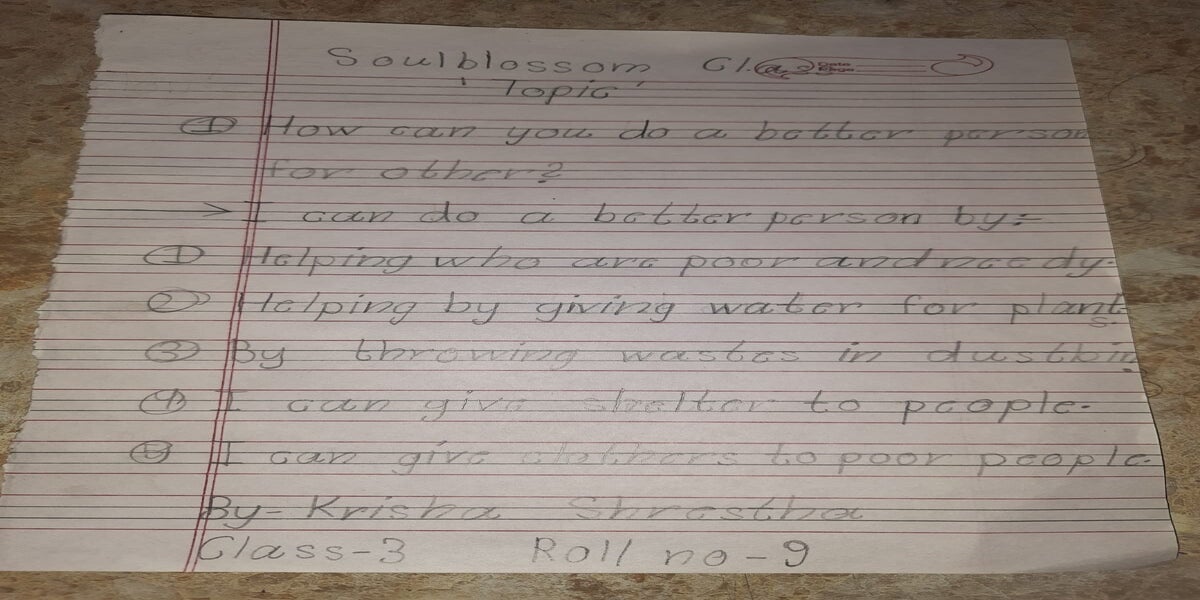 Soulblossom Class
'Topic'
① How can you do a better person
for other?
→ I can do a better person by:-
① Helping who are poor and needy.
② Helping by giving water for plant
s.
③ By throwing wastes in dustbin.
④ I can give shelter to people.
⑤ I can give clothers to poor people.
By- Krisha Shrestha
Class-3 Roll no-9